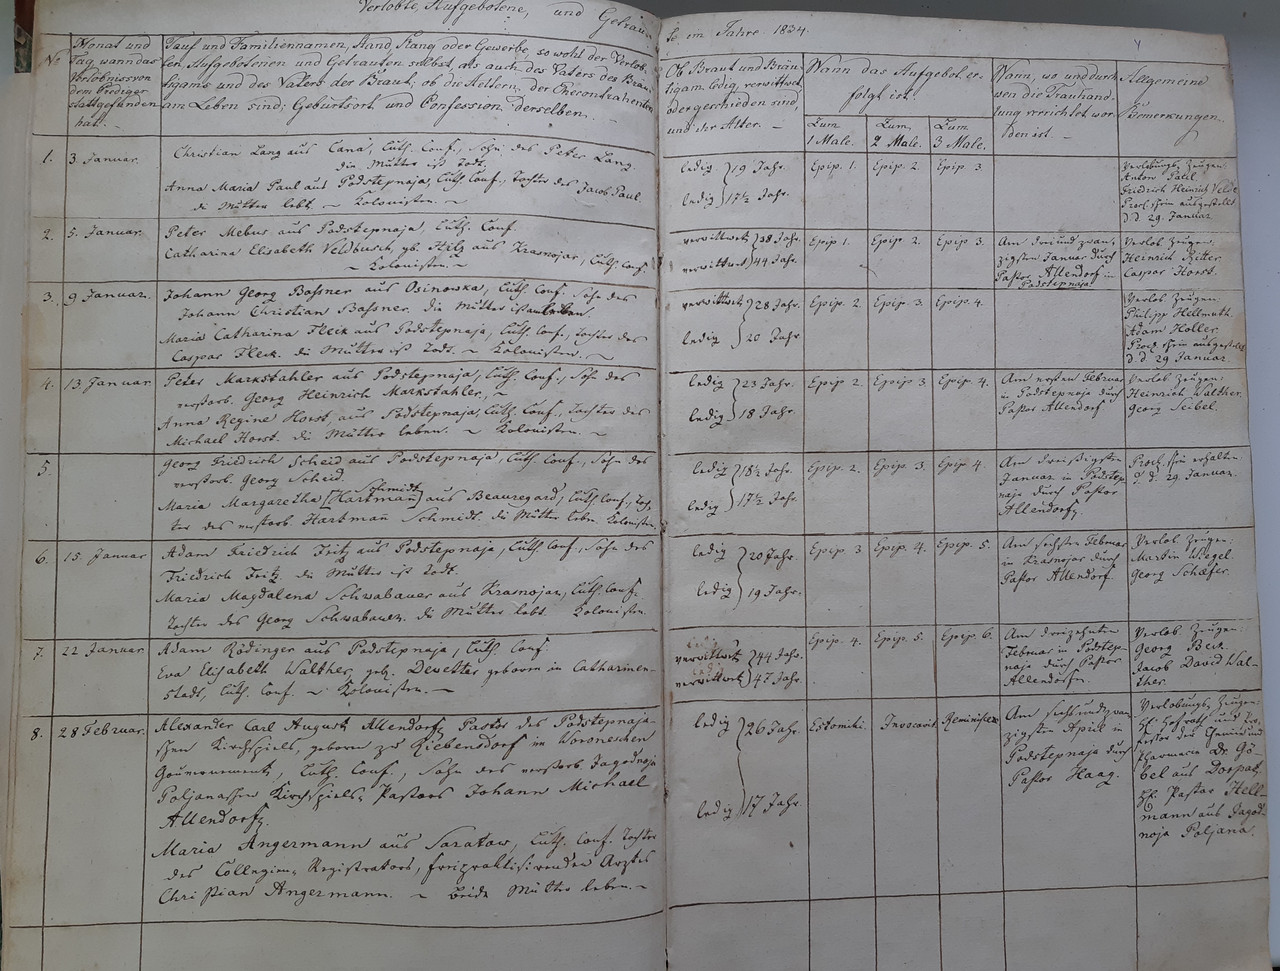 Verlobte, Aufgebotene, und Getraute im Jahre 1834.
No
Monat und
Tag wann das
Verlöbniss von
dem Prediger
stattgefunden
hat. —
Tauf und Familiennamen, Stand, Rang oder Gewerbe, so wohl der Verlob-
ten Aufgebotenen und Getrauten selbst, als auch des Vaters des Bräu-
tigams und des Vaters der Braut; ob die Aeltern der Ehecontrahenten
am Leben sind; Geburtsort und Confession derselben. —
Ob Braut und Bräu-
tigam ledig, verwittwet
oder geschieden sind,
und ihr Alter. —
Wann das Aufgebot er-
folgt ist.
Zum
1 Male.
Zum
2 Male.
Zum
3 Male.
Wann, wo und durch
wen die Trauhand-
lung verrichtet wor-
den ist. —
Allgemeine
Bemerkungen.
1.
3. Januar.
Christian Lang aus Cana, Luth. Conf., Sohn des Peter Lang.
die Mutter ist Todt.
Anna Maria Paul aus Podstepnaja, Luth. Conf., Tochter des Jacob Paul.
die Mutter lebt. ~ Kolonisten. ~
ledig } 19 Jahr.
ledig } 17½ Jahr.
Epip. 1.
Epip. 2.
Epip. 3.
Verlobungs-Zeugen:
Anton Paul
Friedrich Heinrich Velde
Procl. schein ausgestellt
d. d. 29. Januar
2.
5. Januar.
Peter Mebus aus Podstepnaja, Luth. Conf.
Catharina Elisabeth Veldbusch, gb. Hilz aus Krasnojar, Luth. Conf.
~ Kolonisten. ~
verwittwet } 38 Jahr.
verwittwet } 44 Jahr.
Epip 1.
Epip 2.
Epip 3.
Am dreiundzwan-
zigsten Januar durch
Pastor Allendorf in
Podstepnaja
Verlob Zeugen.
Heinrich Ritter
Caspar Horst.
3.
9 Januar.
Johann Georg Bassner aus Osinowka, Luth. Conf. Sohn des
Johann Christian Bassner. die Mutter ist am Leben.
Maria Catharina Fleck aus Podstepnaja, Luth. Conf., Tochter des
Caspar Fleck. die Mutter ist Todt. ~ Kolonisten. ~
verwittwet } 28 Jahr.
ledig } 20 Jahr
Epip. 2.
Epip. 3.
Epip. 4.
Verlob Zeugen
Philipp Hellmuth.
Adam Holler.
Procl. schein ausgestellt
d. d 29 Januar.
4.
13. Januar
Peter Markstahler aus Podstepnaja, Luth. Conf., Sohn des
verstorb. Georg Heinrich Markstahler, ~
Anna Regine Horst, aus Podstepnaja, Luth. Conf., Tochter des
Michael Horst. die Mütter leben. ~ Kolonisten. ~
ledig } 23 Jahr.
ledig } 18 Jahr.
Epip 2.
Epip 3
Epip. 4.
Am ersten Februar
in Podstepnaja durch
Pastor Allendorf
Verlob Zeugen:
Heinrich Walther.
Georg Seibel.
5.
Georg Friedrich Scheid aus Podstepnaja, Luth. Conf., Sohn des
verstorb. Georg Scheid.
Schmidt
Maria Margaretha [Hartmañ] aus Beauregard, Luth. Conf., Toch-
ter des verstorb Hartmañ Schmidt. die Mütter leben. Kolonisten.
ledig } 18½ Jahr.
ledig } 17½ Jahr.
Epip. 2.
Epip. 3.
Epip. 4.
Am dreißigsten
Januar in Podstep-
naja durch Pastor
Allendorf.
Procl. schein erhalten
d. d. 29. Januar.
6.
15 Januar
Adam Friedrich Fritz aus Podstepnaja, Luth. Conf., Sohn des
Friedrich Fritz. die Mutter ist Todt.
Maria Magdalena Schwabauer aus Krasnojar, Luth. Conf.
Tochter des Georg Schwabauer. die Mutter lebt. Kolonisten.
ledig } 20 Jahr.
ledig } 19 Jahr.
Epip. 3
Epip. 4.
Epip. 5.
Am sechsten Februar
in Krasnojar durch
Pastor Allendorf.
Verlob Zeugen:
Martin Wiegel.
Georg Schæfer.
7.
22 Januar
Adam Rödinger aus Podstepnaja, Luth Conf.
Eva Elisabeth Walther, geb. Devetter geboren in Catharinen-
stadt, Luth. Conf. ~ Kolonisten. ~
ledig
verwittwet } 44 Jahr.
ledig
verwittwet } 47 Jahr.
Epip. 4.
Epip. 5.
Epip. 6.
Am dreizehnten
Februar in Podstep-
naja durch Pastor
Allendorf.
Verlob. Zeugen:
Georg Beck.
Jacob David Wal-
ther.
8.
28 Februar.
Alexander Carl August Allendorf, Pastor des Podstepnaja-
schen Kirchspiels, geboren zu Riebensdorf im Woroneschen
Gouvernement, Luth. Conf., Sohn des verstorb. Jagodnaja
Poljanaschen Kirchspiels-Pastors Johann Michael
Allendorf.
Maria Angermann aus Saratow, Luth. Conf. Tochter
des Collegien-Registrators, freipraktisirenden Arztes
Christian Angermann. ~ Beide Mütter leben. ~
ledig } 26 Jahr.
ledig } 17 Jahr.
Estomihi.
Invocavit.
Reminiscere
Am sechsundzwan-
zigsten April in
Podstepnaja durch
Pastor Haag.
Verlobungs-Zeugen:
H. Hofrath und Pro-
fessor der Chemie und
Pharmacie Dr. Gö-
bel aus Dorpat.
H. Pastor Hell-
mann aus Jagod-
noja Poljana.